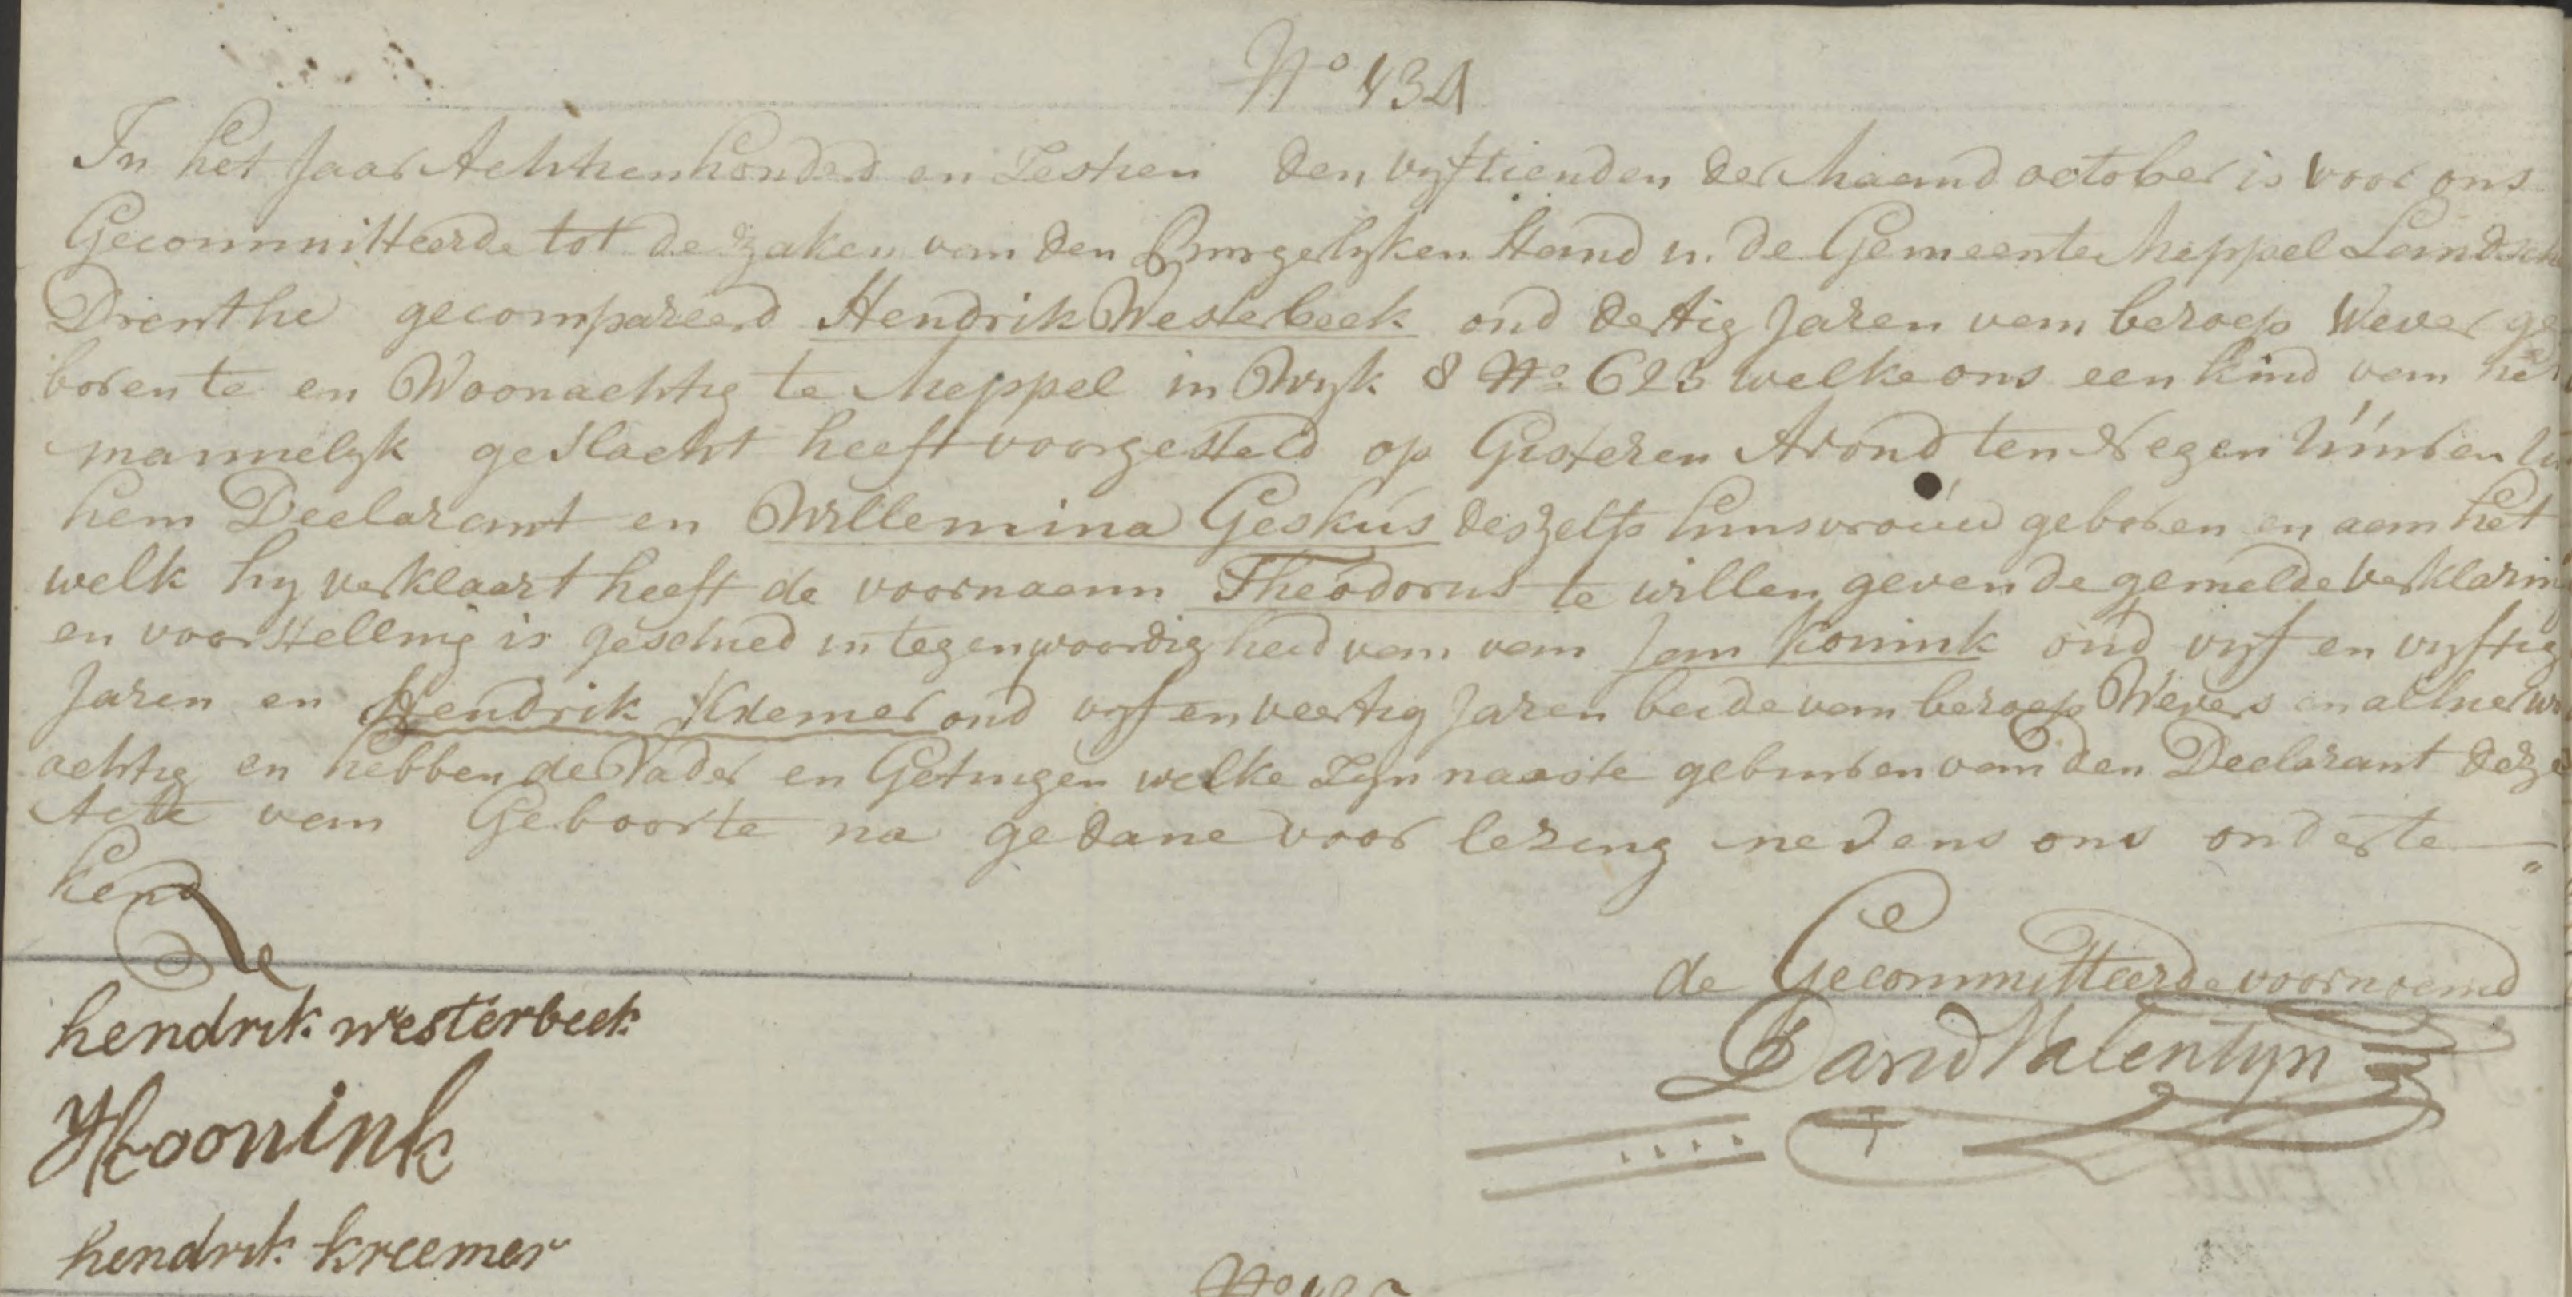 No 134
In het Jaar Achttienhonderd en Zestien den vyftienden der Maand october is voor ons
Gecommitteerde tot de zaken van den Burgerlyken Stand in de Gemeente Meppel Landsch
Drenthe gecompareerd Hendrik Westerbeek oud dertig Jaren van beroep Wever ge
boren te en Woonachtig te Meppel in Wyk 8 No 623 welke ons een kind van het
mannelyk geslacht heeft voorgesteld op Gisteren Avond ten Negen Uuren
hem Declarant en Willemina Geskus deszelfs huisvrouw geboren en aan het
welk hy verklaart heeft de voornaam Theodorus te willen geven de gemelde verklaring
en voorstelling is geschied in tegenwoordigheid van van Jan Konink oud vyf en vyftig
Jaren en Hendrik Kremer oud vyf en veertig Jaren beide van beroep Wevers en alhier
achtig en hebben de Vader en Getuigen welke Zyn naaste gebuuren van den Declarant deze
Acte van Geboorte na gedane voor lezing nevens ons onderte
kend
de Gecommitteerde voornoemd
hendrik westerbeek
David Valentyn
JKoonink
hendrik kreemer
No